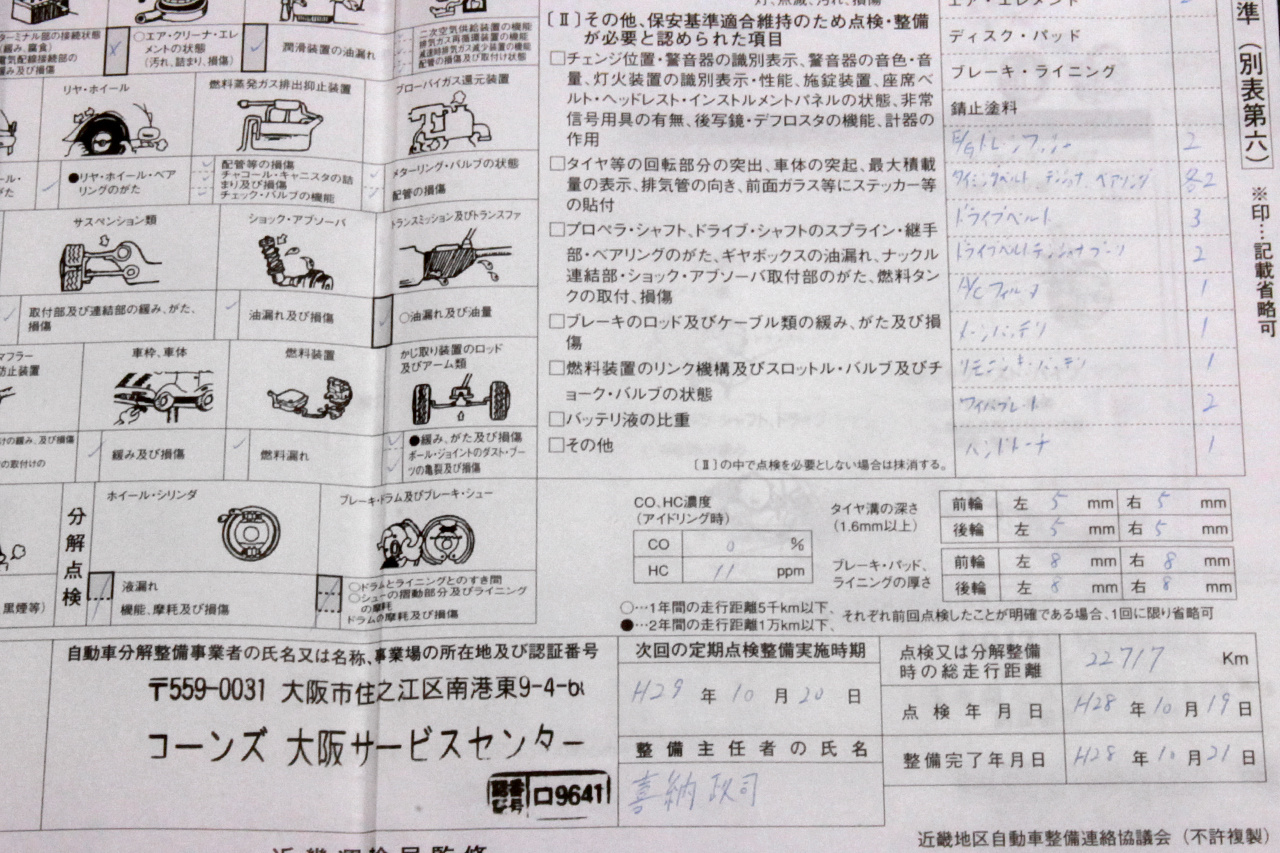 ターミナル部の接続状態
(緩み、腐食)
電気配線接続部の
緩み及び損傷
○エア・クリーナ・エレ
メントの状態
(汚れ、詰まり、損傷)
潤滑装置の油漏れ
二次空気供給装置の機能
排気ガス再循環装置の機能
減速時排気ガス減少装置の機能
配管の損傷及び取付け状態
リヤ・ホイール
燃料蒸発ガス排出抑止装置
ブローバイガス還元装置
●リヤ・ホイール・ベア
リングのがた
配管等の損傷
チャコール・キャニスタの詰
まり及び損傷
チェック・バルブの機能
メターリング・バルブの状態
配管の損傷
サスペンション類
ショック・アブソーバ
トランスミッション及びトランスファ
取付部及び連結部の緩み、がた、
損傷
油漏れ及び損傷
○油漏れ及び油量
マフラー
防止装置
車枠、車体
燃料装置
かじ取り装置のロッド
及びアーム類
付けの緩み、及び損傷
の取付けの
緩み及び損傷
燃料漏れ
●緩み、がた及び損傷
ボール・ジョイントのダスト・ブー
ツの亀裂及び損傷
分解点検
ホイール・シリンダ
ブレーキ・ドラム及びブレーキ・シュー
黒煙等)
液漏れ
機能、摩耗及び損傷
○ドラムとライニングとのすき間
○シューの摺動部分及びライニング
の摩耗
ドラムの摩耗及び損傷
〔Ⅱ〕その他、保安基準適合維持のため点検・整備
が必要と認められた項目
□チェンジ位置・警音器の識別表示、警音器の音色・音
量、灯火装置の識別表示・性能、施錠装置、座席ベ
ルト・ヘッドレスト・インストルメントパネルの状態、非常
信号用具の有無、後写鏡・デフロスタの機能、計器の
作用
□タイヤ等の回転部分の突出、車体の突起、最大積載
量の表示、排気管の向き、前面ガラス等にステッカー等
の貼付
□プロペラ・シャフト、ドライブ・シャフトのスプライン・継手
部・ベアリングのがた、ギヤボックスの油漏れ、ナックル
連結部・ショック・アブソーバ取付部のがた、燃料タン
クの取付、損傷
□ブレーキのロッド及びケーブル類の緩み、がた及び損
傷
□燃料装置のリンク機構及びスロットル・バルブ及びチ
ョーク・バルブの状態
□バッテリ液の比重
□その他
〔Ⅱ〕の中で点検を必要としない場合は抹消する。
エア・エレメント
ディスク・パッド
ブレーキ・ライニング
錆止塗料
E/Gドレンワッシャ 2
タイミングベルト テンショナ ベアリング 各2
ドライブベルト 3
ドライブベルトテンショナプーリ 2
A/Cフィルタ 1
メーンバッテリ 1
リモコンキーバッテリ 1
ワイパブレード 2
ハンドトーチ 1
準(別表第六)
※印…記載省略可
CO、HC濃度
(アイドリング時)
CO 0 %
HC 11 ppm
タイヤ溝の深さ
(1.6mm以上)
前輪 左 5 mm 右 5 mm
後輪 左 5 mm 右 5 mm
ブレーキ・パッド、
ライニングの厚さ
前輪 左 8 mm 右 8 mm
後輪 左 8 mm 右 8 mm
○…1年間の走行距離5千km以下、
●…2年間の走行距離1万km以下、
それぞれ前回点検したことが明確である場合、1回に限り省略可
自動車分解整備事業者の氏名又は名称、事業場の所在地及び認証番号
〒559-0031 大阪市住之江区南港東9-4-6
コーンズ 大阪サービスセンター
認番
証号
ロ9641
次回の定期点検整備実施時期
H29 年 10 月 20 日
整備主任者の氏名
喜納 政司
点検又は分解整備
時の総走行距離
22717 Km
点検年月日 H28 年 10 月 19 日
整備完了年月日 H28 年 10 月 21 日
近畿地区自動車整備連絡協議会(不許複製)
近畿運輸局監修